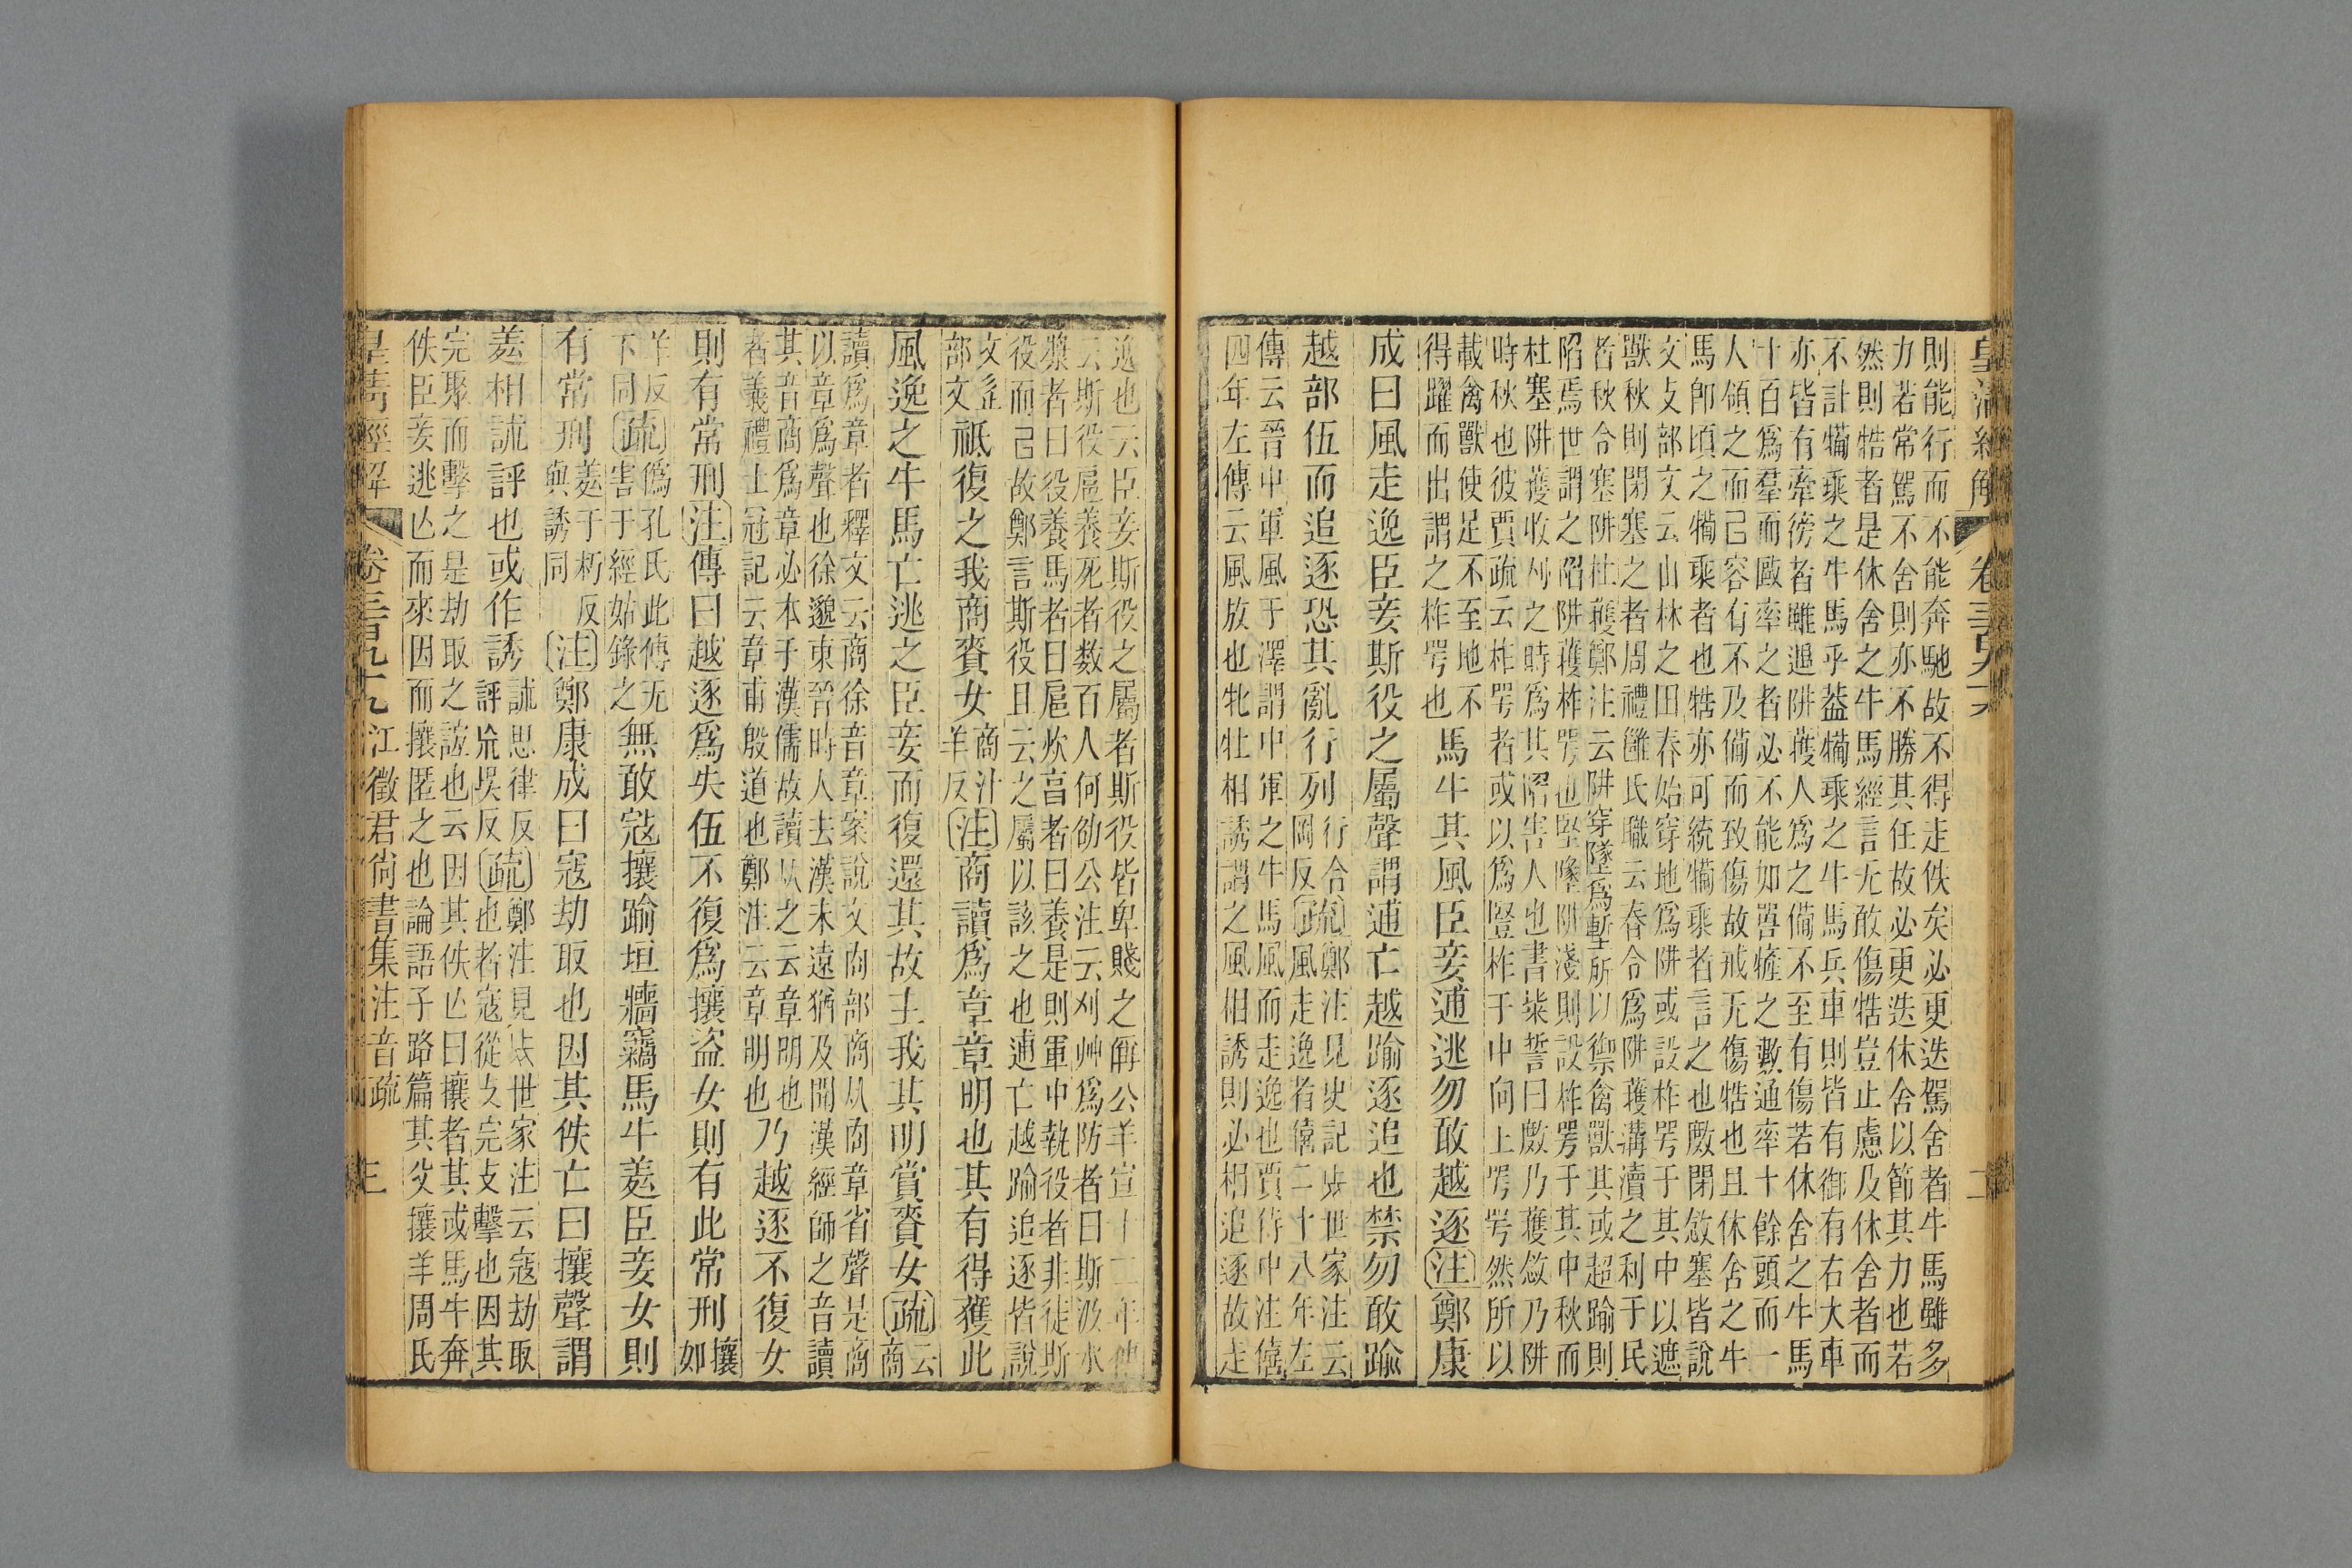 則能行而不能奔馳故不得走佚矣必更迭駕舍者牛馬雖多
力若常駕不舍則亦不勝其任故必更迭休舍以節其力也若
然則牿者是休舍之牛馬經言无敢傷牿豈止慮及休舍者而
不計犕乘之牛馬乎葢犕乘之牛馬兵車則皆有御有右大車
亦皆有牽徬者雖遇阱擭人爲之備不至有傷若休舍之牛馬
十百爲羣而敺率之者必不能如之數通率十餘頭而一
人領之而已容有不及備而致傷故戒无傷牿也且休舍之牛
馬卽頃之犕乘者也牿亦可統犕乘者言之也閉敜塞皆說
文攴部文云山林之田春始穿地爲阱或設柞咢于其中以遮
獸秋則閉塞之者周禮雝氏職云春令爲阱擭溝瀆之利于民
者秋令塞阱杜擭鄭注云阱穿墜爲塹所以禦禽獸其或超踰則
陷焉世謂之陷阱擭柞咢也堅墬阱淺則設柞咢于其中秋而
杜塞阱擭收刈之時爲其陷害人也書粊誓曰乃擭敜乃阱
時秋也彼賈疏云柞咢者或以爲豎柞于中向上咢咢然所以
載禽獸使足不至地不
得躍而出謂之柞咢也
馬牛其風臣妾逋逃勿敢越逐注鄭康
成曰風走逸臣妾斯役之屬聲謂逋亡越踰逐追也禁勿敢踰
越部伍而追逐恐其亂行列
行合
岡反
疏
鄭注見史記世家注云
風走逸者僖二十八年左
傳云晉中軍風于澤謂中軍之牛馬風而走逸也賈侍中注僖
四年左傳云風放也牝牡相誘謂之風相誘則必相追逐故走
逸也云臣妾斯役之屬者斯役皆卑賤之偁公羊宣十二年傳
云斯役扈養死者數百人何劭公注云刈艸爲防者曰斯汲水
漿者曰役養馬者曰扈炊亯者曰養是則軍中執役者非徒斯
役而已故鄭言斯役且云之屬以該之也逋亡越踰追逐皆說
文辵
部文
祗復之我商賚女
商汁
羊反
注商讀爲章章明也其有得獲此
風逸之牛馬亡逃之臣妾而復還其故主我其明賞賚女疏
云
商
讀爲章者釋文云商徐音章案說文㕯部商从㕯章省聲是商
以章爲聲也徐邈東晉時人去漢未遠猶及聞漢經師之音讀
其音商爲章必本于漢儒故讀从之云章明也
者義禮士冠記云章甫殷道也鄭注云章明也
乃越逐不復女
則有常刑注傳曰越逐爲失伍不復爲攘盜女則有此常刑
攘
如
羊反
下同
疏
僞孔氏此傳无
害于經姑錄之
無敢寇攘踰垣牆竊馬牛羑臣妾女則
有常刑
羑于朽反
與誘同
注鄭康成曰寇劫取也因其佚亡曰攘聲謂
羑相訹評也或作誘
訹思律反
疏
鄭注見世家注云寇劫取
也者寇從攴完攴擊也因其
完聚而擊之是劫取之誼也云因其佚亾曰攘者其或馬牛奔
佚臣妾逃亾而來因而攘匿之也論語子路篇其父攘羊周氏
皇清經解 卷三百九十九 江徵君尙書集注音疏 三